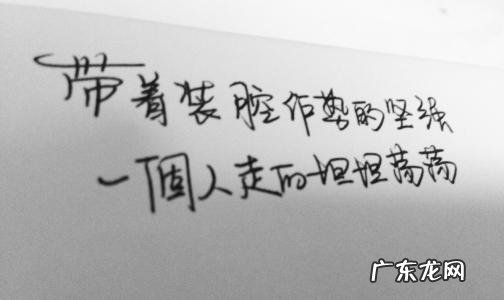 带着装腔作势的坚强
一個人走的坦坦荡荡
广东龙网